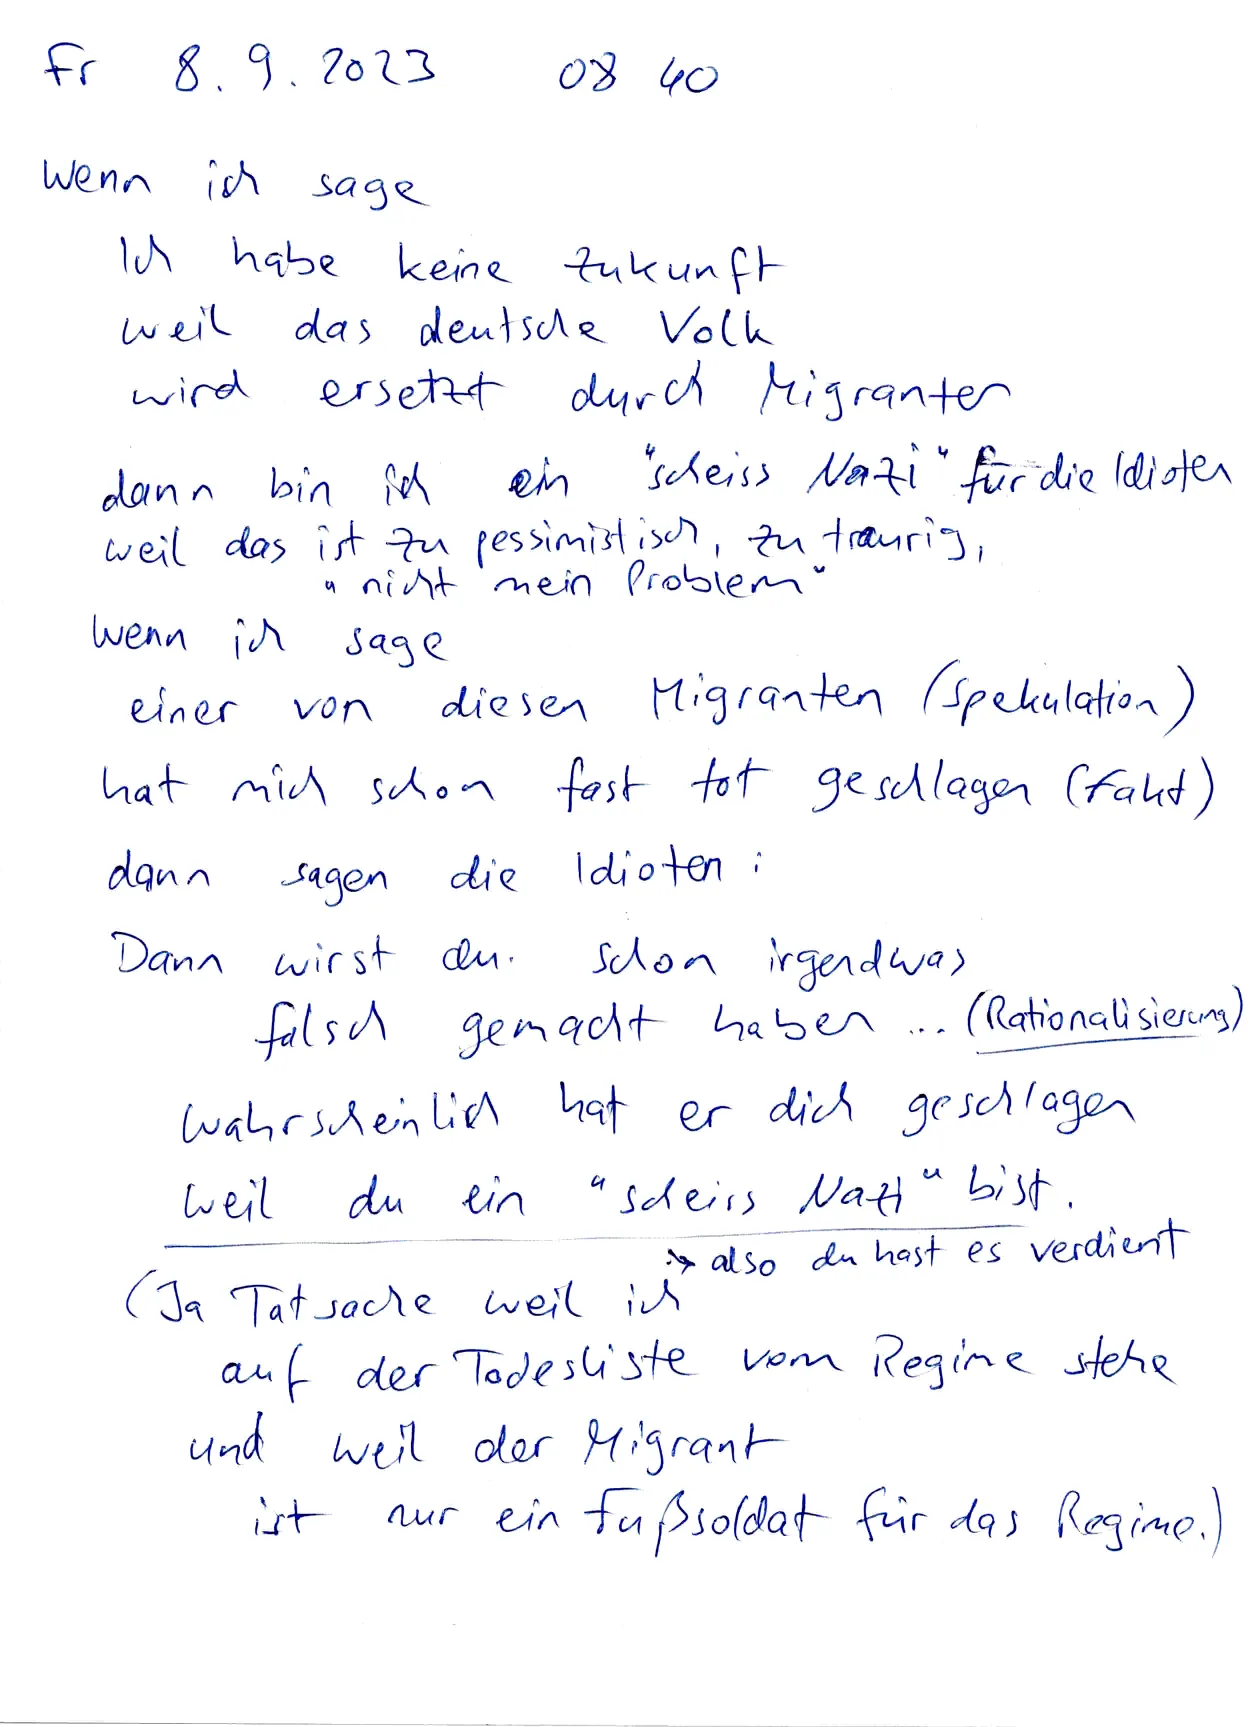 Fr 8.9.2023 08 40
Wenn ich sage
Ich habe keine Zukunft
weil das deutsche Volk
wird ersetzt durch Migranten
dann bin ich ein "scheiss Nazi" für die Idioten
weil das ist zu pessimistisch, zu traurig,
"nicht mein Problem"
Wenn ich sage
einer von diesen Migranten (Spekulation)
hat mich schon fast tot geschlagen (Fakt)
dann sagen die Idioten:
Dann wirst du schon irgendwas
falsch gemacht haben ... (Rationalisierung)
wahrscheinlich hat er dich geschlagen
weil du ein "scheiss Nazi" bist.
→ also du hast es verdient
(Ja Tatsache weil ich
auf der Todesliste vom Regime stehe
und weil der Migrant
ist nur ein Fußsoldat für das Regime.)